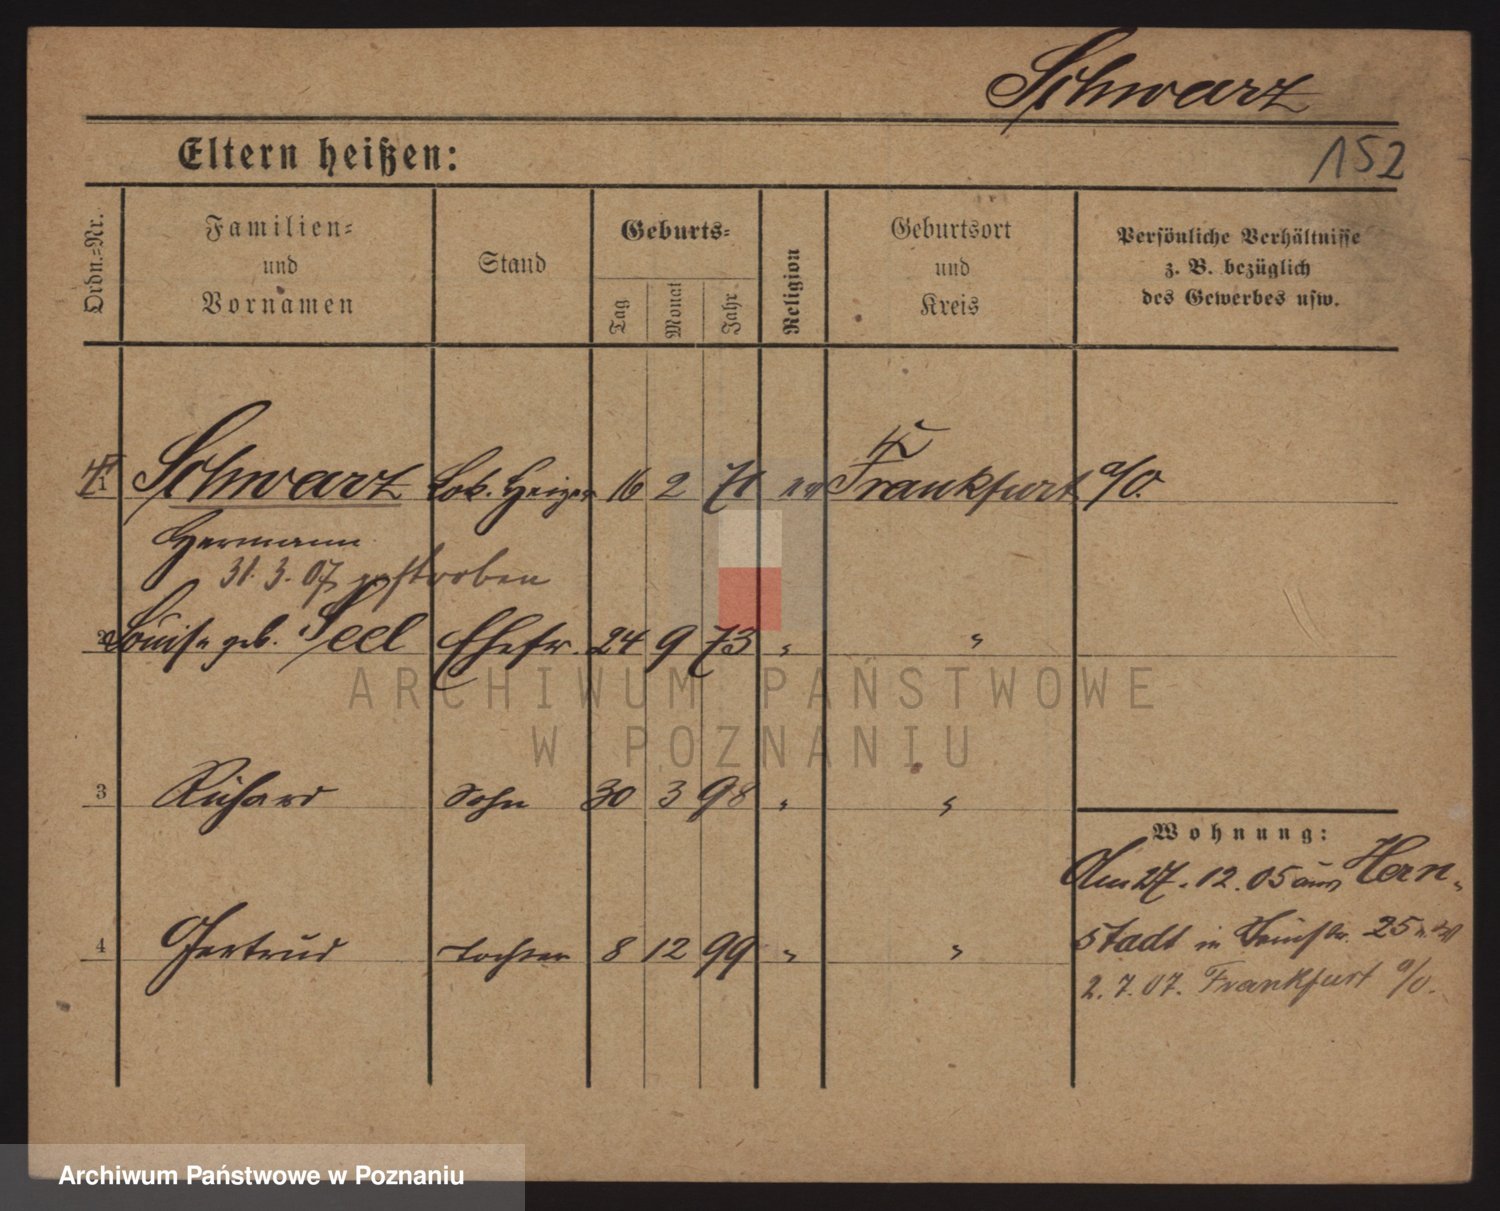 Schwarz
Eltern heißen:
152
Ordn.-Nr.
Familien-
und
Vornamen
Stand
Geburts-
Tag
Monat
Jahr
Religion
Geburtsort
und
Kreis
Persönliche Verhältnisse
z. B. bezüglich
des Gewerbes usw.
1 Schwarz Lok. Heizer 16 2 71 ev Frankfurt a/O.
Hermann
31.3.07 gestorben
2 Louise geb. Seel Ehefr. 24 9 73 " "
3 Richard Sohn 30 3 98 " "
Wohnung:
Am 27.12.05 aus Hern-
4 Gertrud Tochter 8 12 99 " "
stadt in 25
2.7.07. Frankfurt a/O.
ARCHIWUM PAŃSTWOWE
W POZNANIU
Archiwum Państwowe w Poznaniu